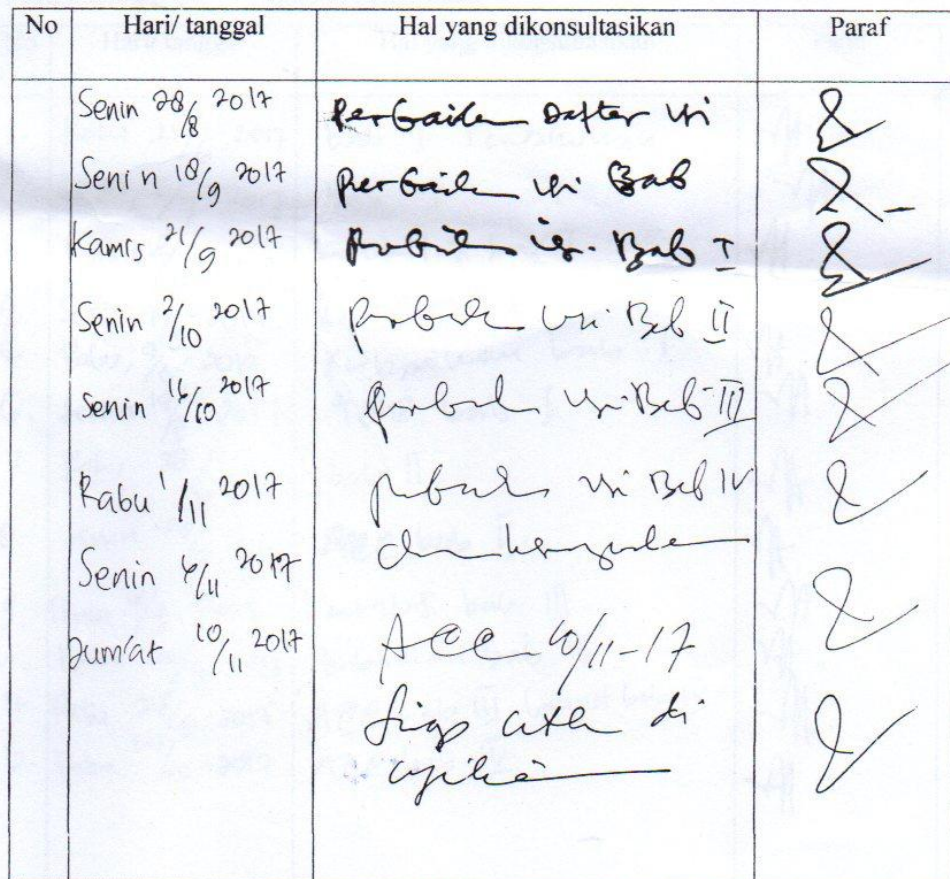 No Hari/ tanggal Hal yang dikonsultasikan Paraf
Senin 28/8 2017 Perbaikan Daftar isi
Senin 18/9 2017 Perbaikan isi Bab
Kamis 21/9 2017 Perbaikan isi Bab I
Senin 2/10 2017 Perbaikan isi Bab II
Senin 16/10 2017 Perbaikan isi Bab III
Rabu 1/11 2017 Perbaikan isi Bab IV
dan
Senin 6/11 2017
Jum'at 10/11 2017 ACC 10/11-17
Siap di